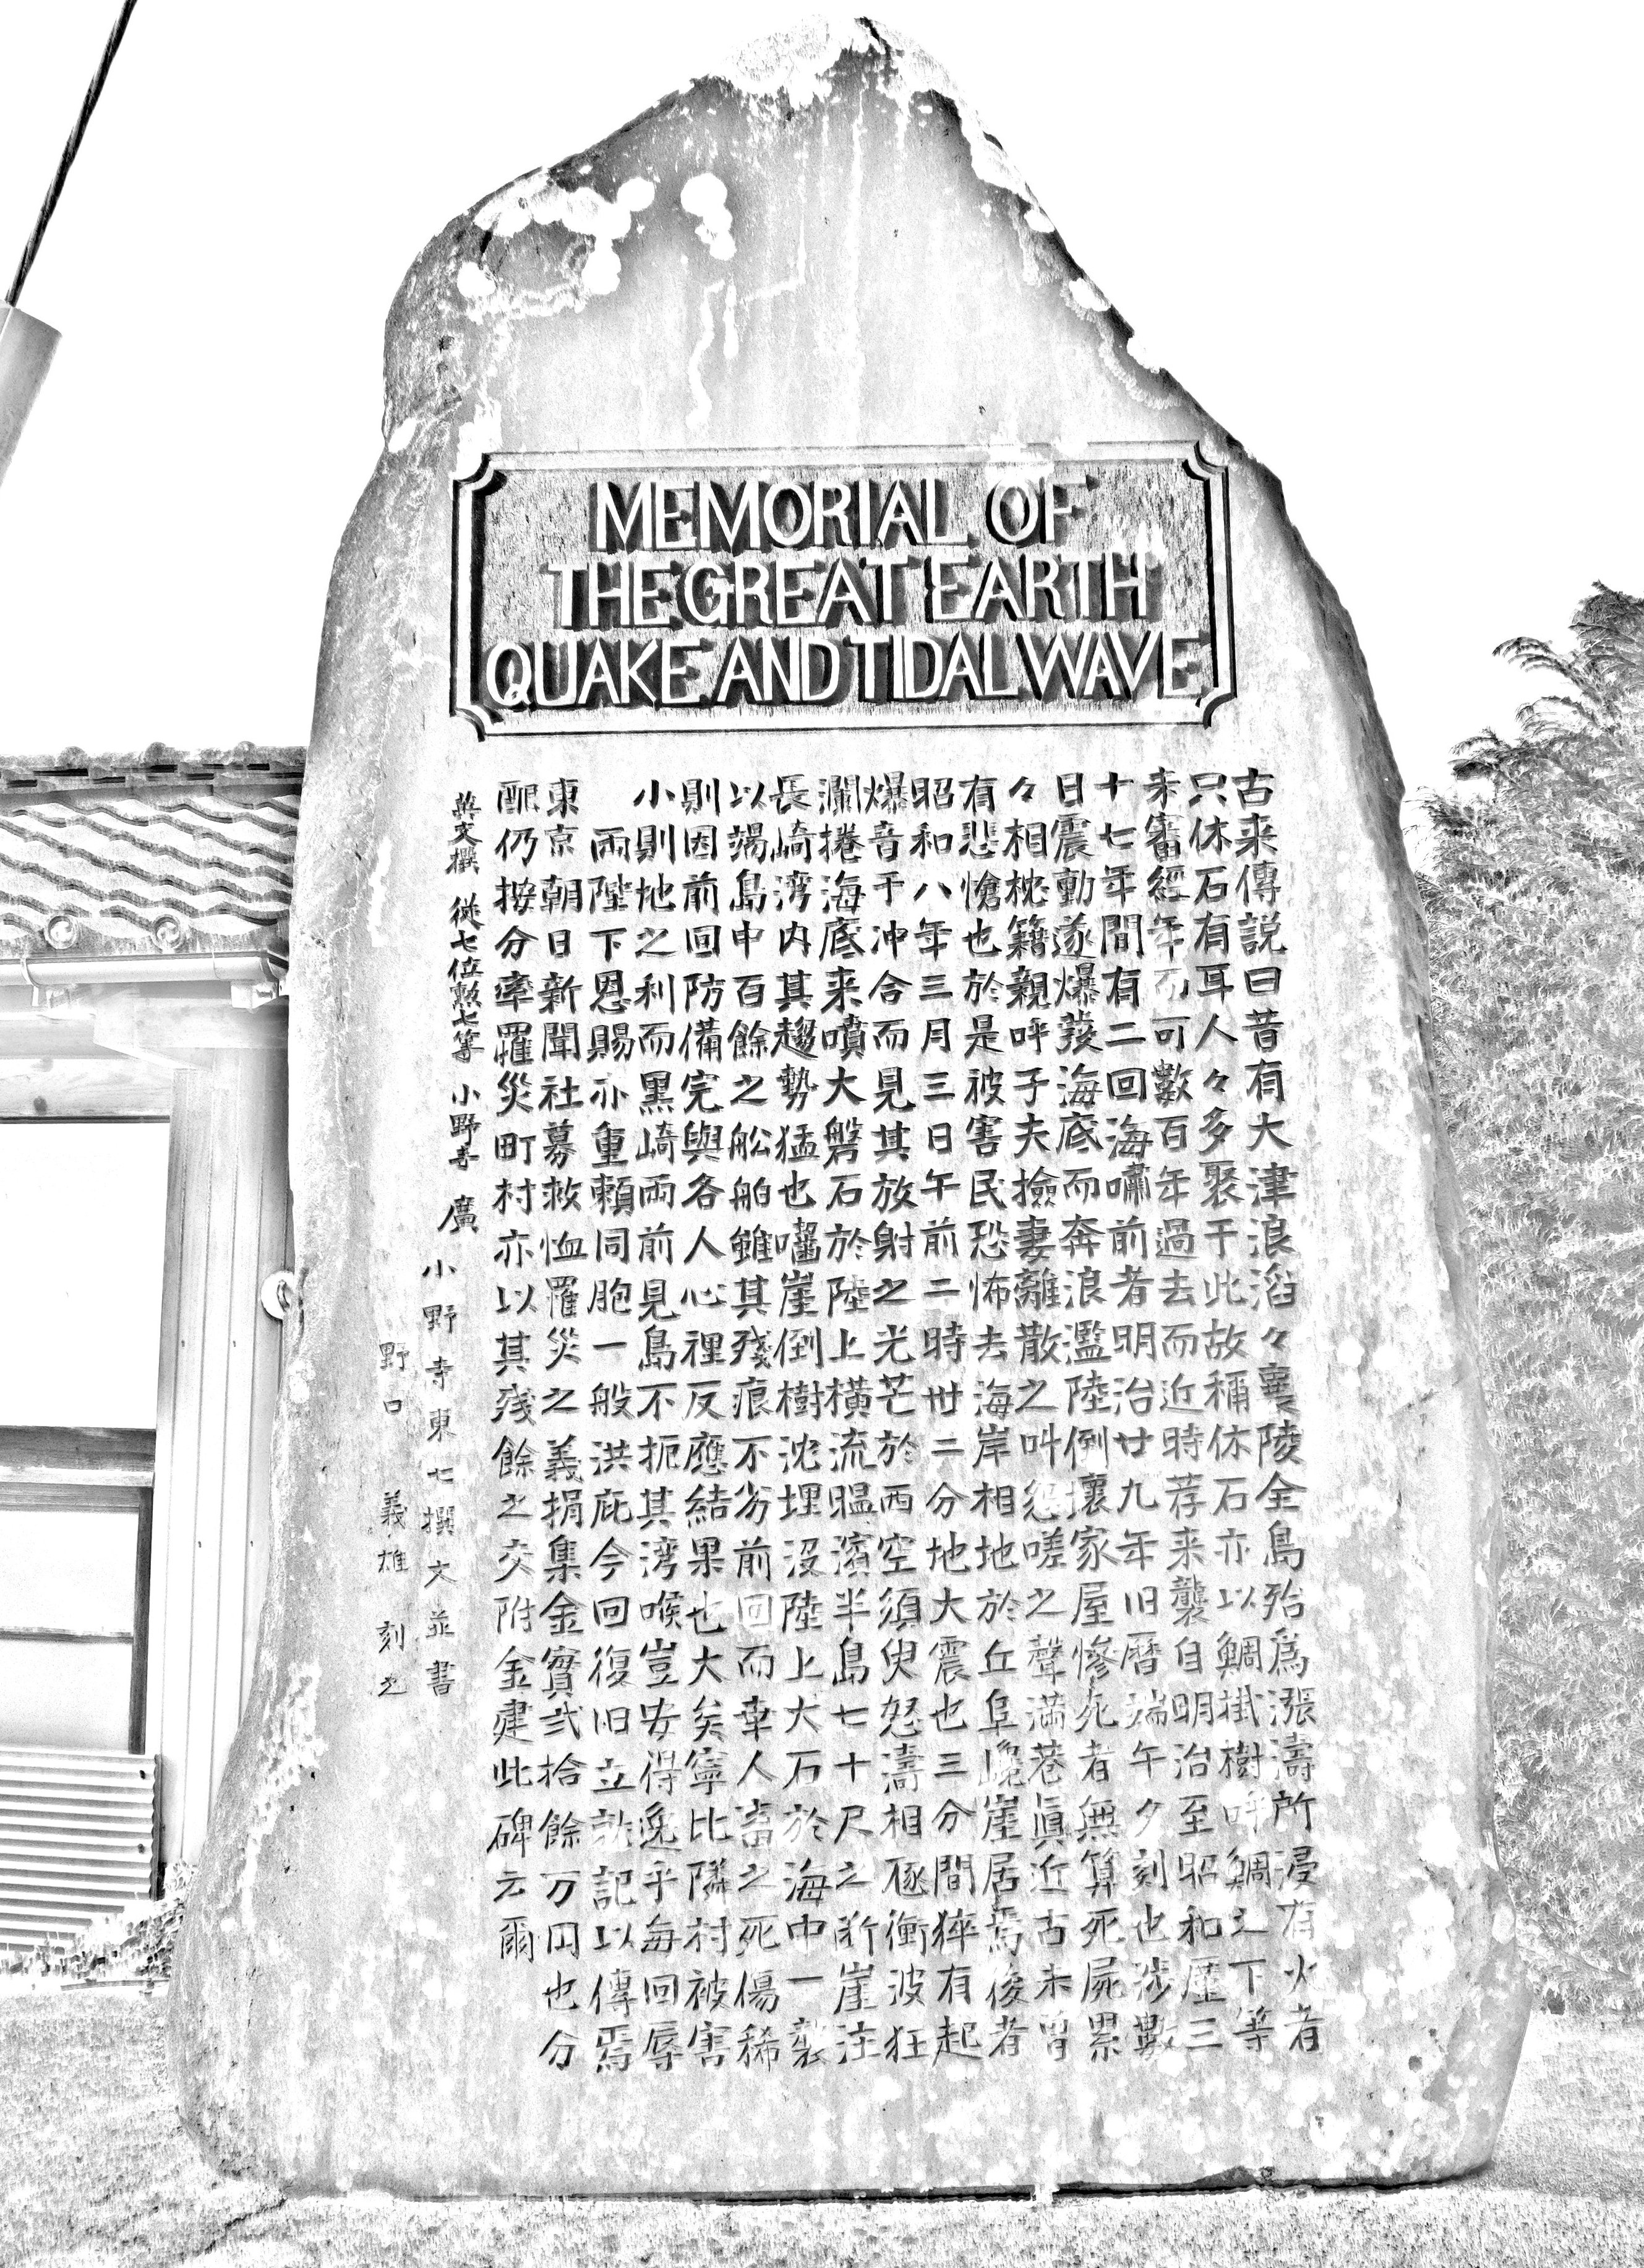 MEMORIAL OF
THE GREAT EARTH
QUAKE AND TIDAL WAVE
古来傳説曰昔有大津浪滔々襄陵全島殆爲漲濤所浸有火者
只休石有耳人々多聚于此故稱休石亦以鯛掛樹呼鯛之下等
未審經年而可數百年過去而近時荐来襲自明治至昭和歴三
十七年間有二回海嘯前者明治廿九年旧暦端午夕刻也渉數
日震動遂爆發海底而奔浪濫陸倒壊家屋慘死者無算死屍累
々相枕籍親呼子夫撿妻離散之叫怨嗟之聲満巷眞近古未曽
有悲愴也於是被害民恐怖去海岸相地於丘阜巉崖居焉後者
昭和八年三月三日午前二時卅二分地大震也三分間猝有起
爆音于冲合而見其放射之光芒於西空須臾怒濤相逐衝波狂
瀾捲海底来噴大磐石於陸上横流濱半島七十尺之断崖注
長崎湾内其趨勢猛也囓崖倒樹沈埋没陸上大石於海中一襲
以蕩島中百餘之舩舶雖其殘痕不劣前回而幸人畜之死傷稀
則因前回防備完與各人心裡反應結果也大矣寧比隣村被害
小則地之利而黒崎兩前見島不扼其湾喉豈安得逸乎毎回辱
兩陛下恩賜亦重頼同胞一般洪庇今回復旧立就記以傳焉
東京朝日新聞社募救恤罹災之義捐集金實弐拾餘万円也分
配仍按分牽罹災町村亦以其残餘之交附金建此碑云爾
英文撰 従七位勲七等 小野寺 廣
小野寺東七撰文並書
野口 義雄 刻之